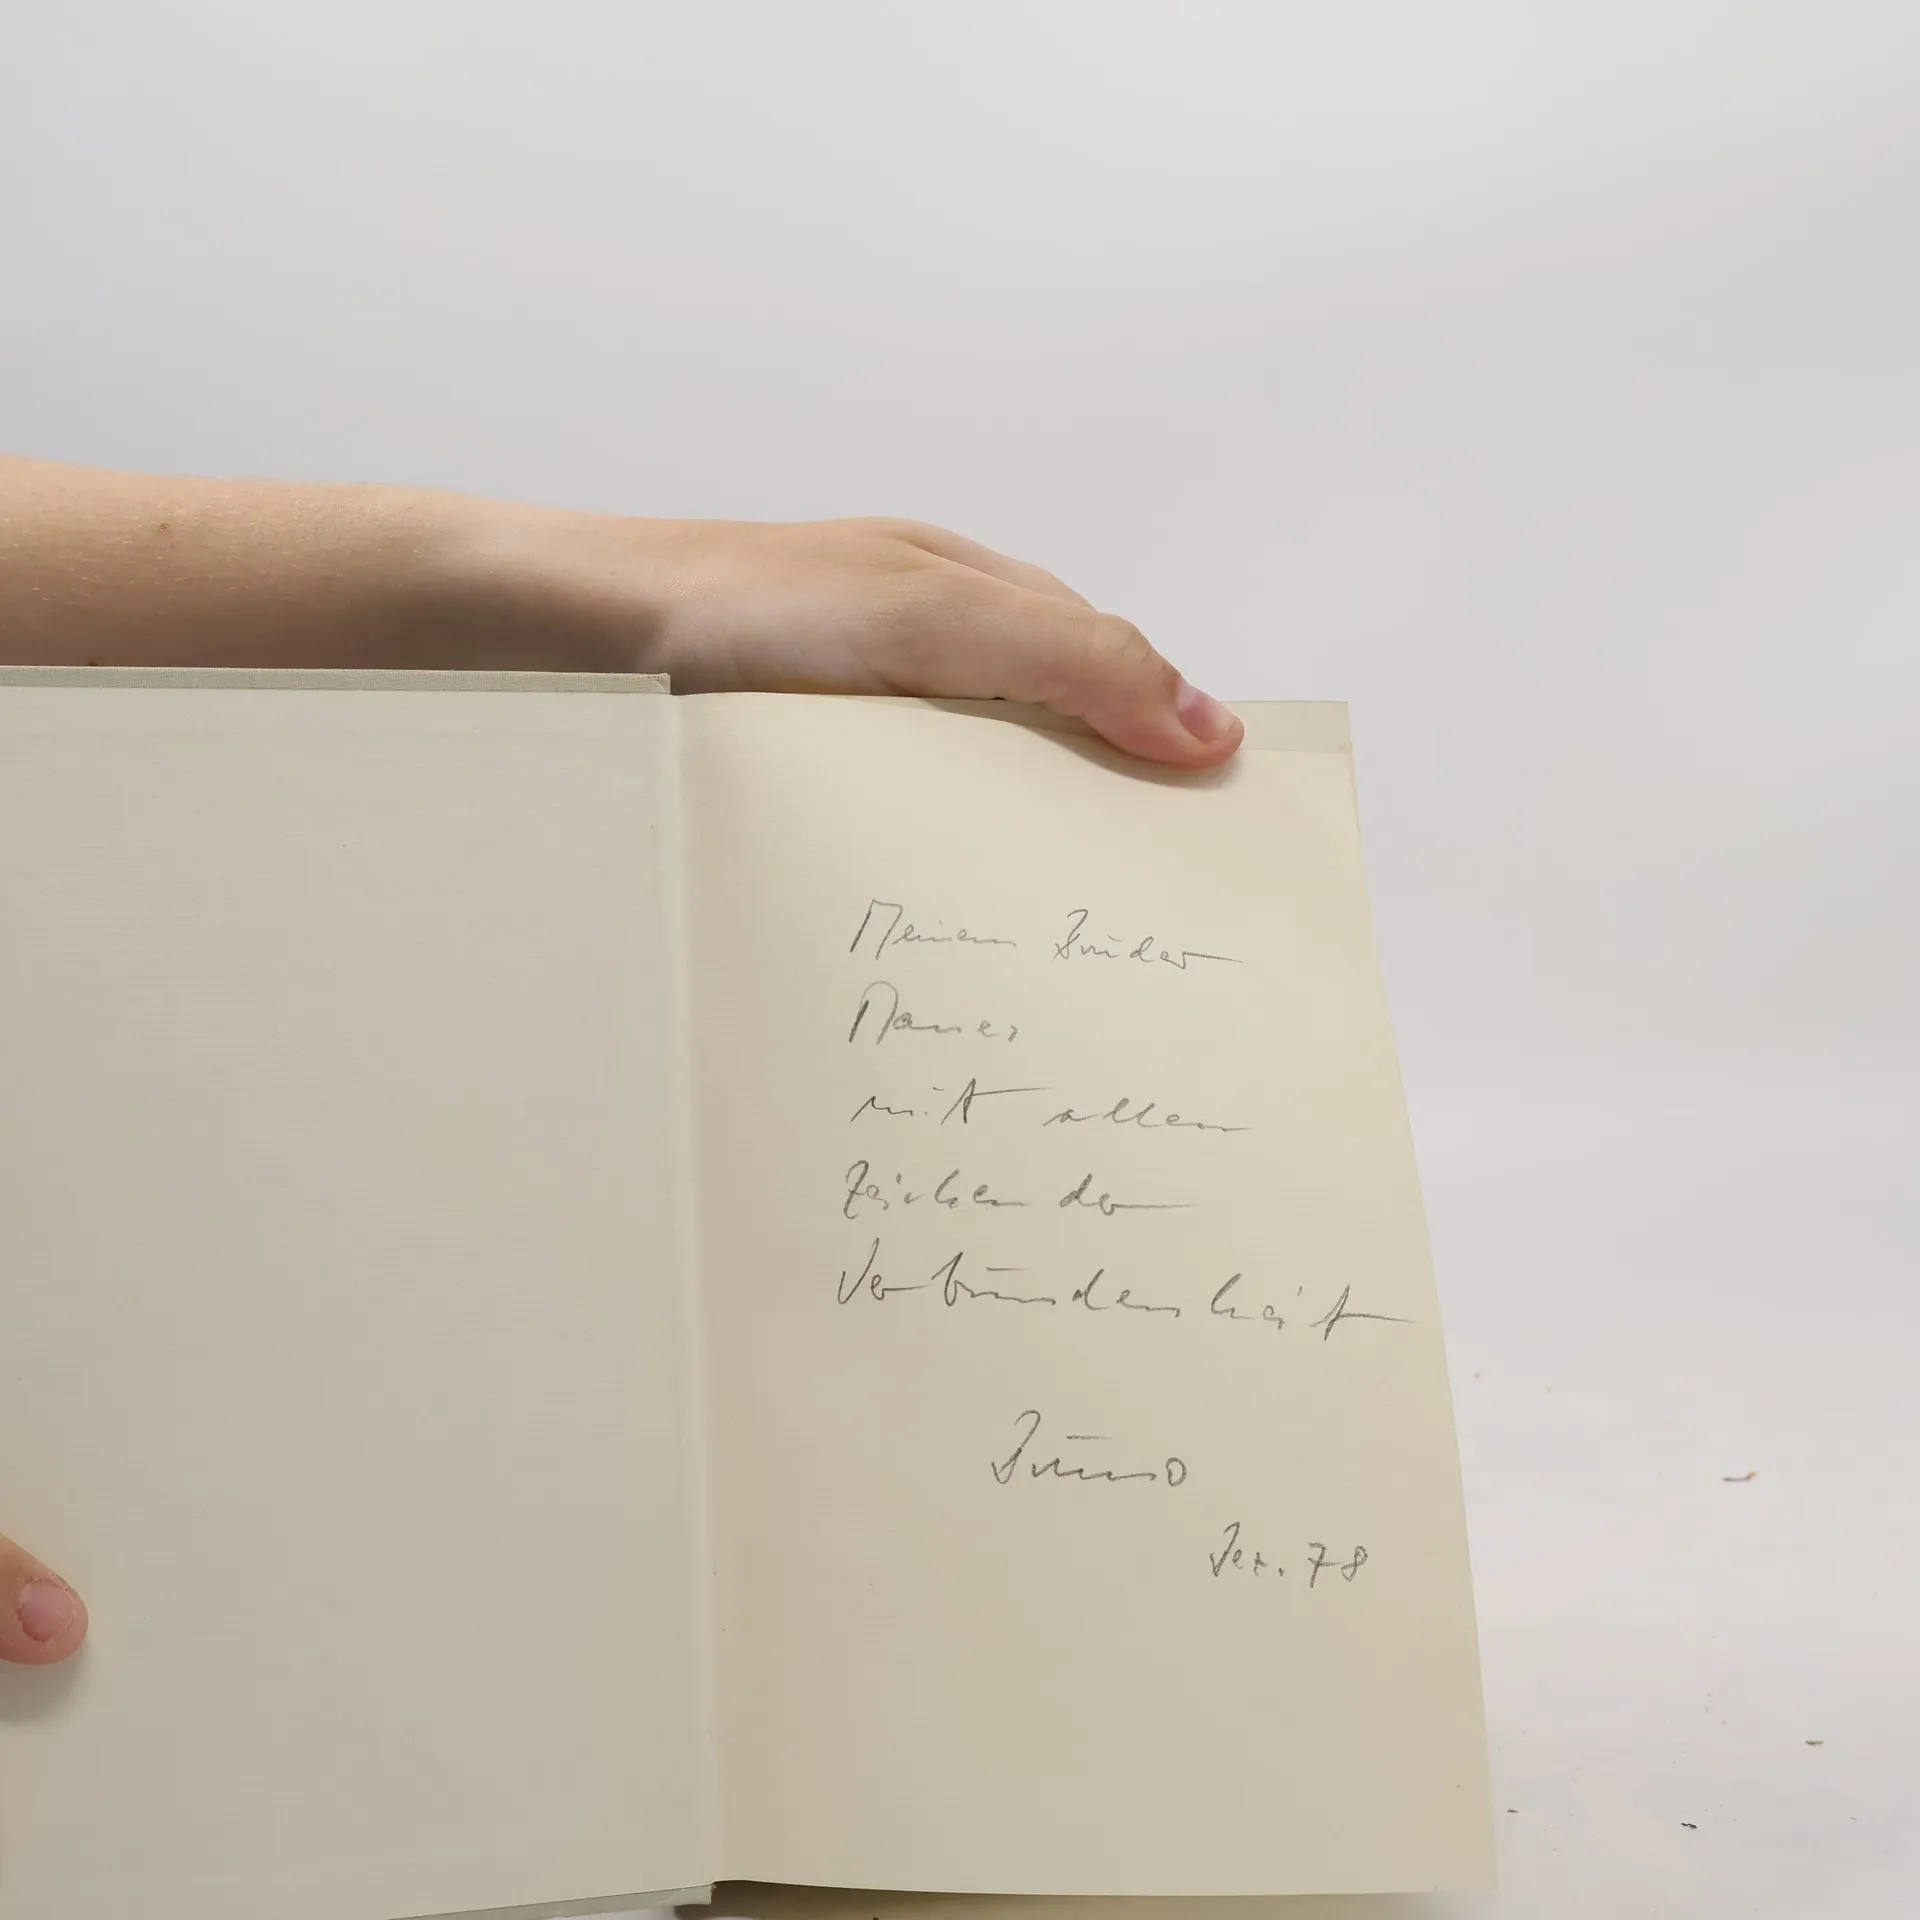 Meinem Bruder
mit allen
Zeichen der
Verbundenheit
Bruno
Dez. 78